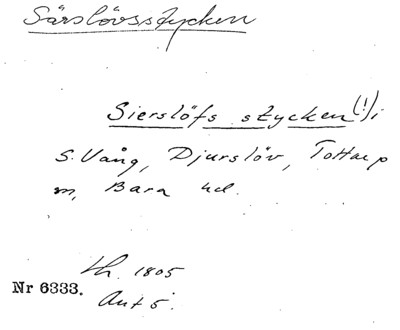 Särslövsstycken
Sierslöfs stycken (!) i
S. Vång, Djurslöv, Tottarp
m, Bara hd.
lh. 1805
Nr 6333.
Ant 5.